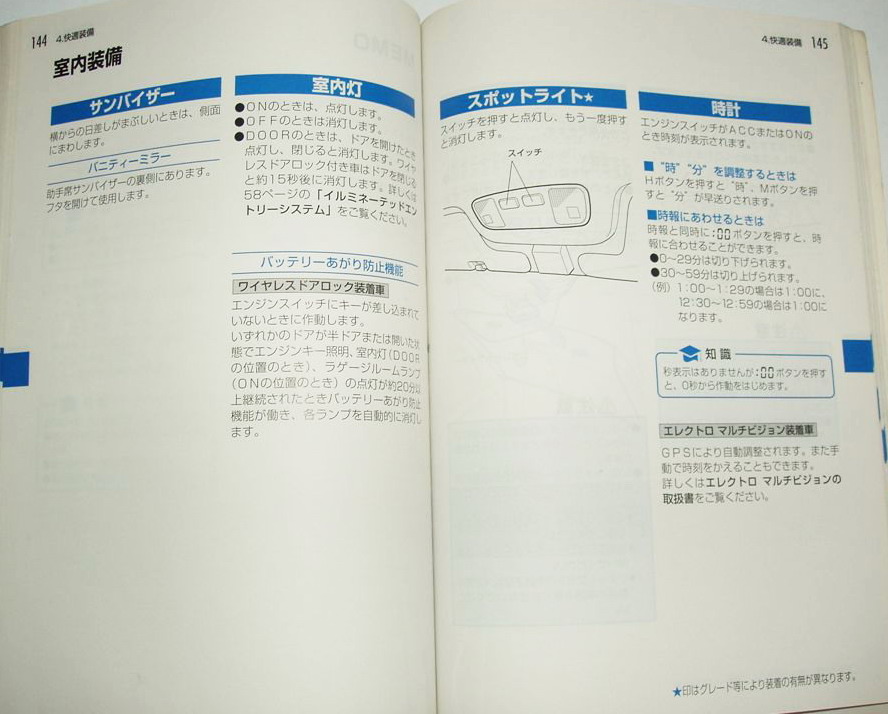 144 4.快適装備
室内装備
サンバイザー
横からの日差しがまぶしいときは、側面
にまわします。
バニティーミラー
助手席サンバイザーの裏側にあります。
フタを開けて使用します。
室内灯
●ONのときは、点灯します。
●OFFのときは消灯します。
●DOORのときは、ドアを開けたとき
点灯し、閉じると消灯します。ワイヤ
レスドアロック付き車はドアを閉じる
と約15秒後に消灯します。詳しくは
58ページの「イルミネーテッドエン
トリーシステム」をご覧ください。
バッテリーあがり防止機能
ワイヤレスドアロック装着車
エンジンスイッチにキーが差し込まれて
いないときに作動します。
いずれかのドアが半ドアまたは開いた状
態でエンジンキー照明、室内灯(DOOR
の位置のとき)、ラゲージルームランプ
(ONの位置のとき)の点灯が約20分以
上継続されたときバッテリーあがり防止
機能が働き、各ランプを自動的に消灯し
ます。
4.快適装備 145
スポットライト★
スイッチを押すと点灯し、もう一度押す
と消灯します。
スイッチ
時計
エンジンスイッチがACCまたはONの
とき時刻が表示されます。
■“時”“分”を調整するときは
Hボタンを押すと“時”、Mボタンを押
すと“分”が早送りされます。
■時報にあわせるときは
時報と同時に:00ボタンを押すと、時
報に合わせることができます。
●0〜29分は切り下げられます。
●30〜59分は切り上げられます。
(例) 1:00〜1:29の場合は1:00に、
12:30〜12:59の場合は1:00に
なります。
知識
秒表示はありませんが:00ボタンを押す
と、0秒から作動をはじめます。
エレクトロ マルチビジョン装着車
GPSにより自動調整されます。また手
動で時刻をかえることもできます。
詳しくはエレクトロ マルチビジョンの
取扱書をご覧ください。
★印はグレード等により装着の有無が異なります。